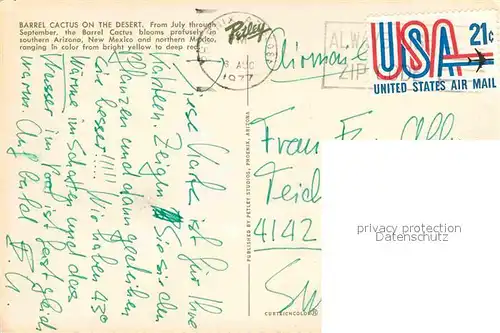 BARREL CACTUS ON THE DESERT. From July through
September, the Barrel Cactus blooms profusely in
southern Arizona, New Mexico and northern Mexico,
ranging in color from bright yellow to deep red.
Diese Karte ist für Ihre
Kakteen. Zeigen Sie sie den
Pflanzen und dann gedeihen
sie besser!!!! Wir haben 43°
Wärme im Schatten und das
Wasser im Pool ist fast gleich
warm. Auf bald
DISTRIBUTED BY PETLEY STUDIOS, PHOENIX, ARIZONA
CURTEICHCOLOR
Petley
PHOENIX
8 AUG
1977
Airmail
ZIP
USA 21c
UNITED STATES AIR MAIL
Frau
Teich
4142
privacy protection
Datenschutz